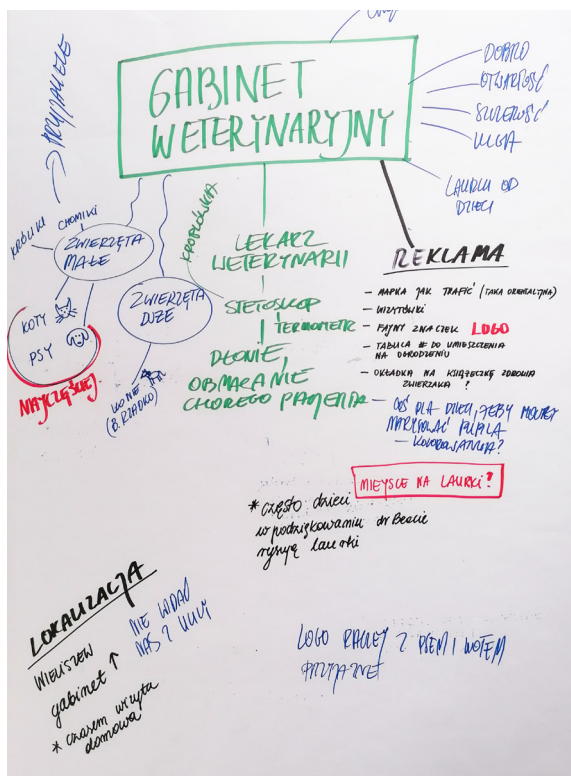 GABINET
WETERYNARYJNY
DOBRO
OTWARTOŚĆ
SZCZEROŚĆ
ULGA
LAURKI OD
DZIECI
KRÓLIKI
CHOMIKI
ZWIERZĘTA
MAŁE
KOTY
PSY
NAJCZĘŚCIEJ
ZWIERZĘTA
DUŻE
KONIE
(B. RZADKO)
KROPLÓWKA
LEKARZ
WETERYNARII
STETOSKOP
TERMOMETR
DŁONIE,
OBMACANIE
CHOREGO PACJENTA
REKLAMA
- MAPKA JAK TRAFIĆ (TAKA ORIENTACYJNA)
- WIZYTÓWKI
- FAJNY ZNACZEK LOGO
- TABLICA # DO UMIESZCZENIA
NA OGRODZENIU
- OKŁADKA NA KSIĄŻECZKĘ ZDROWIA
ZWIERZAKA ?
- COŚ DLA DZIECI, ŻEBY MOGŁY
NARYSOWAĆ PUPILA
- KOLOROWANKA?
MIEJSCE NA LAURKI?
* CZĘSTO dzieci
w podziękowaniu dr Beacie
rysują laurki
LOKALIZACJA
WIELISZEW
gabinet ↑
NIE WIDAĆ
NAS Z ULICY
* czasem wizyta
domowa
LOGO RACZEJ Z PSEM I KOTEM
PRZYJAZNE